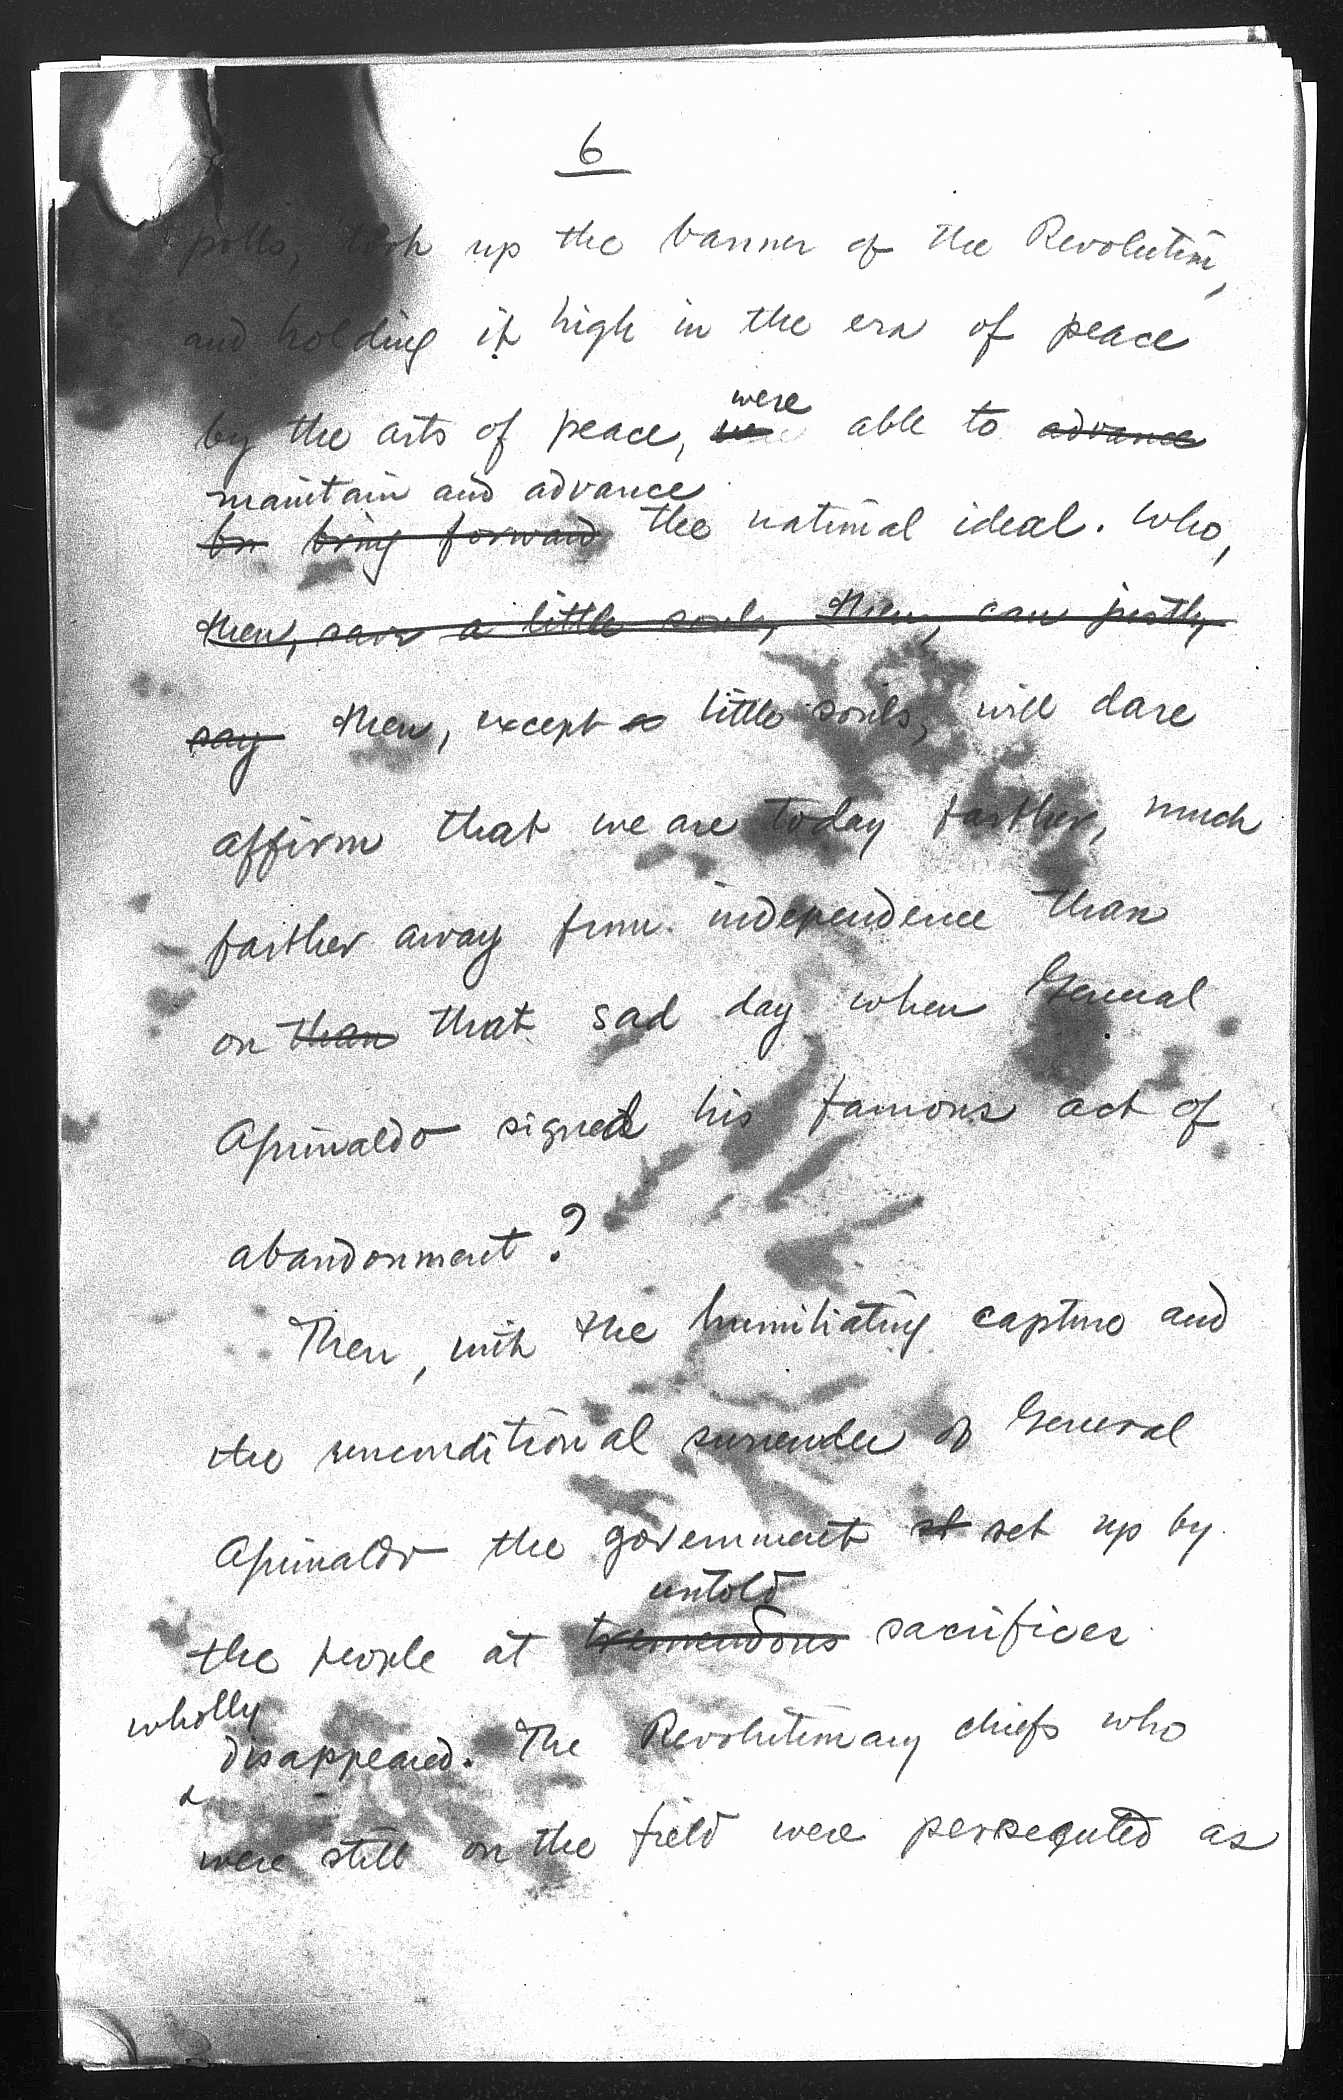 6
polls, took up the banner of the Revolution,
and holding it high in the era of peace
by the arts of peace, were able to advance
maintain and advance
bri bring forward the national ideal. Who,
then, save a little souls, then, can justly
say then, except little souls, will dare
affirm that we are today farther, much
farther away from independence than
on than that sad day when General
Aguinaldo signed his famous act of
abandonment?
Then, with the humiliating capture and
the unconditional surrender of General
Aguinaldo the government st set up by
untold
the people at tremendous sacrifices
wholly
disappeared. The Revolutionary chiefs who
were still on the field were persequted as